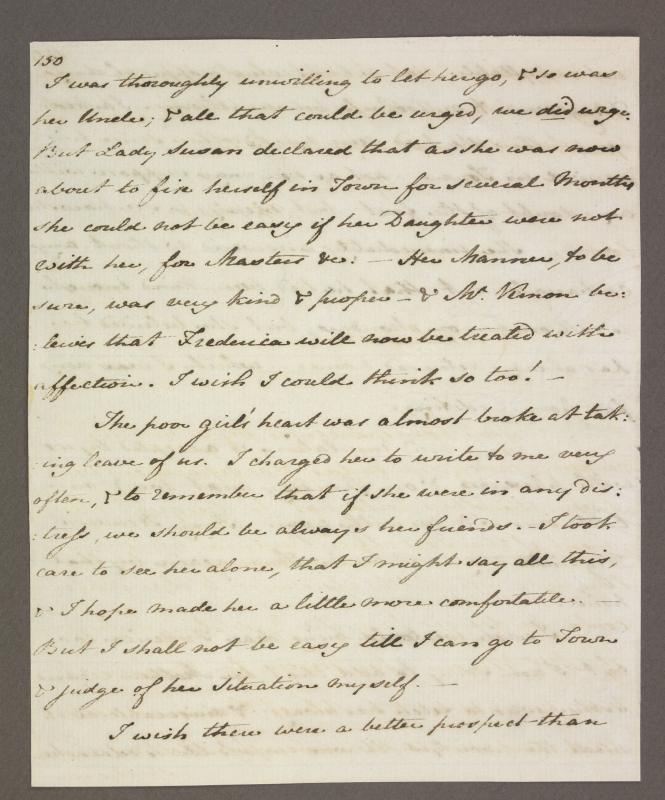 150
I was thoroughly unwilling to let her go, & so was
her Uncle; & all that could be urged, we did urge.
But Lady Susan declared that as she was now
about to fix herself in Town for several Months
she could not be easy if her Daughter were not
with her, for Masters &c. — Her Manner, to be
sure, was very kind & proper — & Mr. Vernon be:
:leives that Frederica will now be treated with
affection. I wish I could think so too! —
The poor girl's heart was almost broke at tak:
:ing leave of us. I charged her to write to me very
often, & to remember that if she were in any dis:
:tress, we should be always her friends. — I took
care to see her alone, that I might say all this,
& I hope made her a little more comfortable. —
But I shall not be easy till I can go to Town
& judge of her Situation myself. —
I wish there were a better prospect than